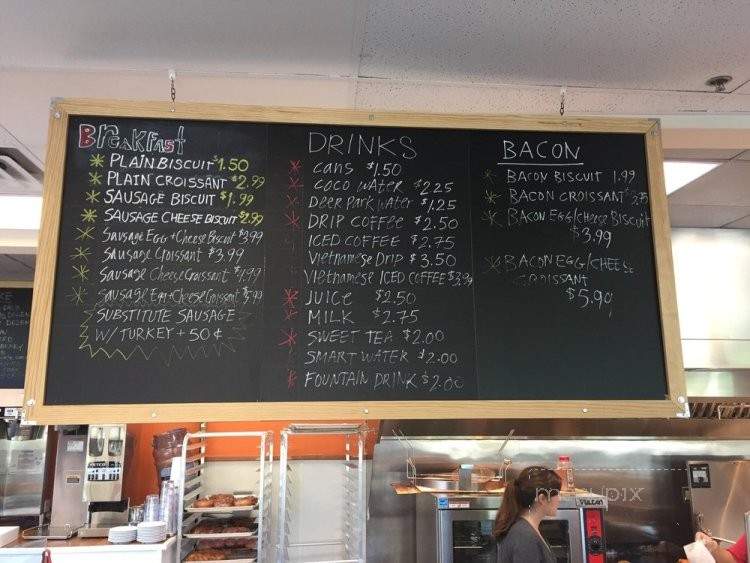 BreakFast
* PLAIN BISCUIT $1.50
* PLAIN CROISSANT $2.99
* SAUSAGE BISCUIT $1.99
* SAUSAGE CHEESE BISCUIT $2.99
* Sausage Egg + Cheese Biscuit $3.99
* Sausage Croissant $3.99
* Sausage Cheese Croissant $4.99
* Sausage Egg + Cheese Croissant $5.99
SUBSTITUTE SAUSAGE
W/ TURKEY + 50¢
DRINKS
* Cans $1.50
* COCO WATER $2.25
* Deer Park Water $1.25
* DRIP COFFEE $2.50
ICED COFFEE $2.75
Vietnamese Drip $3.50
Vietnamese ICED COFFEE $3.99
* JUICE $2.50
* MILK $2.75
* SWEET TEA $2.00
SMART WATER $2.00
* FOUNTAIN DRINK $2.00
BACON
* BACON BISCUIT 1.99
* BACON CROISSANT $3.75
* BACON Egg/cheese Biscuit
$3.99
* BACON EGG/CHEESE
CROISSANT
$5.99
VULCAN